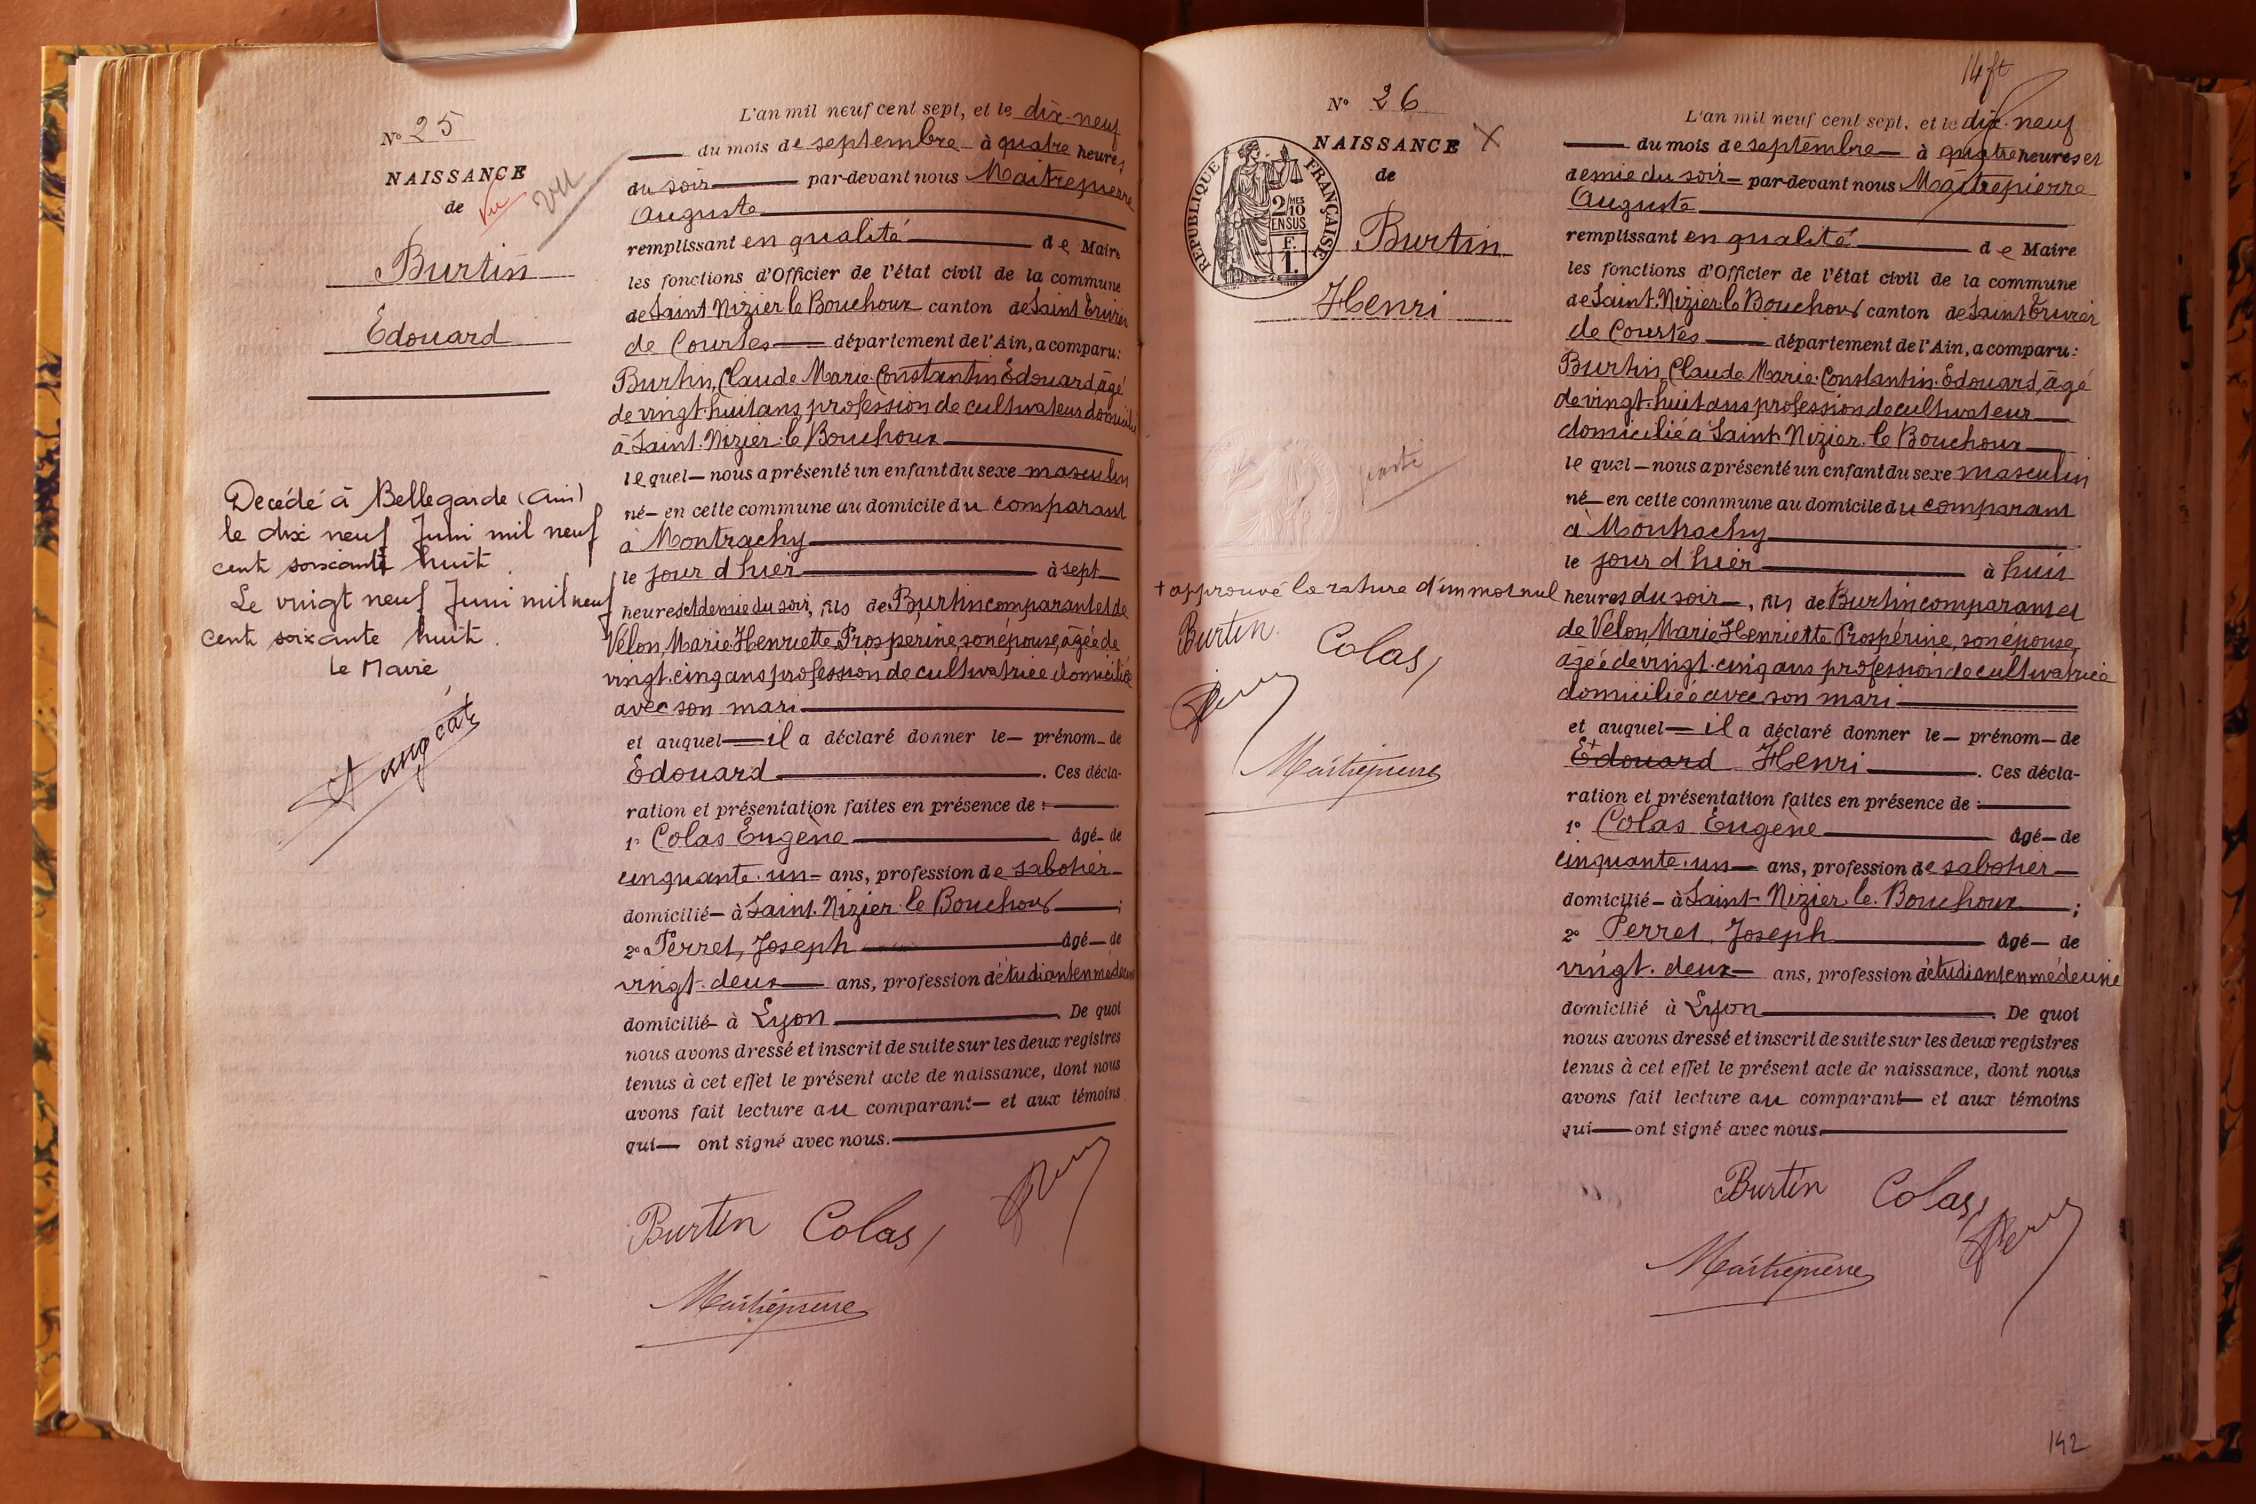 N° 25
NAISSANCE
de
Vu
vu
Burtin
Edouard
Decédé à Bellegarde (Ain)
le dix neuf Juin mil neuf
cent soixante huit.
Le vingt neuf Juin mil neuf
cent soixante huit.
Le Maire,
L'an mil neuf cent sept, et le dix-neuf
du mois de septembre à quatre heures
du soir par-devant nous Maitrepierre
Auguste
remplissant en qualité de Maire
les fonctions d'Officier de l'état civil de la commune
de Saint-Nizier le Bouchoux canton de Saint Trivier
de Courtes département de l'Ain, a comparu:
Burtin, Claude Marie-Constantin Edouard, âgé
de vingt-huit ans, profession de cultivateur domicilié
à Saint-Nizier-le Bouchoux
lequel nous a présenté un enfant du sexe masculin
né en cette commune au domicile du comparant
à Montrachy
le jour d'hier à sept
heures et demie du soir, fils de Burtin comparant et de
Vélon, Marie Henriette Prosperine, son épouse, âgée de
vingt-cinq ans profession de cultivatrice domiciliée
avec son mari
et auquel il a déclaré donner le prénom de
Edouard. Ces décla-
ration et présentation faites en présence de :
1° Colas Eugène âgé de
cinquante-un ans, profession de sabotier
domicilié à Saint-Nizier-le Bouchoux ;
2° Perret, Joseph âgé de
vingt-deux ans, profession d'étudiant en médecine
domicilié à Lyon. De quoi
nous avons dressé et inscrit de suite sur les deux registres
tenus à cet effet le présent acte de naissance, dont nous
avons fait lecture au comparant et aux témoins
qui ont signé avec nous.
Burtin Colas
Maitrepierre
14 ft
N° 26
NAISSANCE X
de
RÉPUBLIQUE FRANÇAISE
2/10 MES
EN SUS
F.
1.
Burtin
Henri
+ approuvé la rature d'un mot nul
Burtin Colas
Maitrepierre
L'an mil neuf cent sept, et le dix-neuf
du mois de septembre à quatre heures et
demie du soir par-devant nous Maitrepierre
Auguste
remplissant en qualité de Maire
les fonctions d'Officier de l'état civil de la commune
de Saint-Nizier-le Bouchoux canton de Saint Trivier
de Courtes département de l'Ain, a comparu:
Burtin, Claude Marie-Constantin-Edouard, âgé
de vingt-huit ans profession de cultivateur
domicilié à Saint-Nizier-le Bouchoux
lequel nous a présenté un enfant du sexe masculin
né en cette commune au domicile du comparant
à Montrachy
le jour d'hier à huit
heures du soir, fils de Burtin comparant et
de Vélon, Marie Henriette Prospérine, son épouse,
âgée de vingt-cinq ans profession de cultivatrice
domiciliée avec son mari
et auquel il a déclaré donner le prénom de
Edouard Henri. Ces décla-
ration et présentation faites en présence de :
1° Colas Eugène âgé de
cinquante-un ans, profession de sabotier
domicilié à Saint-Nizier-le-Bouchoux ;
2° Perret, Joseph âgé de
vingt-deux ans, profession d'étudiant en médecine
domicilié à Lyon. De quoi
nous avons dressé et inscrit de suite sur les deux registres
tenus à cet effet le présent acte de naissance, dont nous
avons fait lecture au comparant et aux témoins
qui ont signé avec nous.
Burtin Colas
Maitrepierre
142